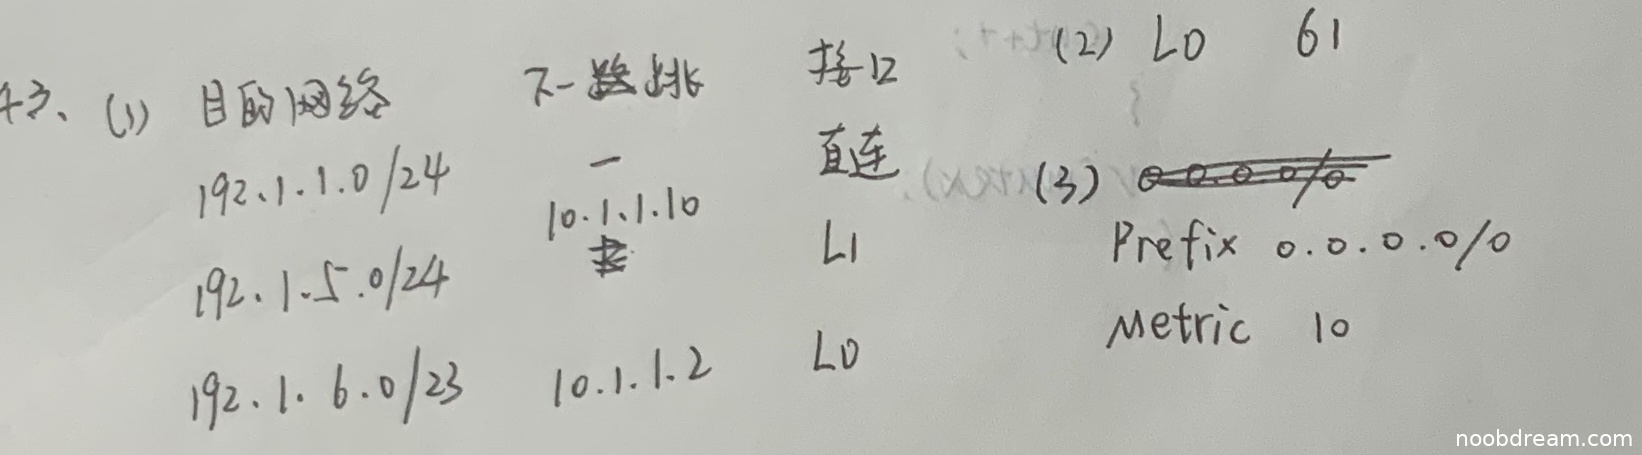 43、(1) 目的网络 下一跳 接口
192.1.1.0/24 — 直连
192.1.5.0/24 10.1.1.10 L1
192.1.6.0/23 10.1.1.2 L0
(2) L0 61
(3)
Prefix 0.0.0.0/0
Metric 10
noobdream.com